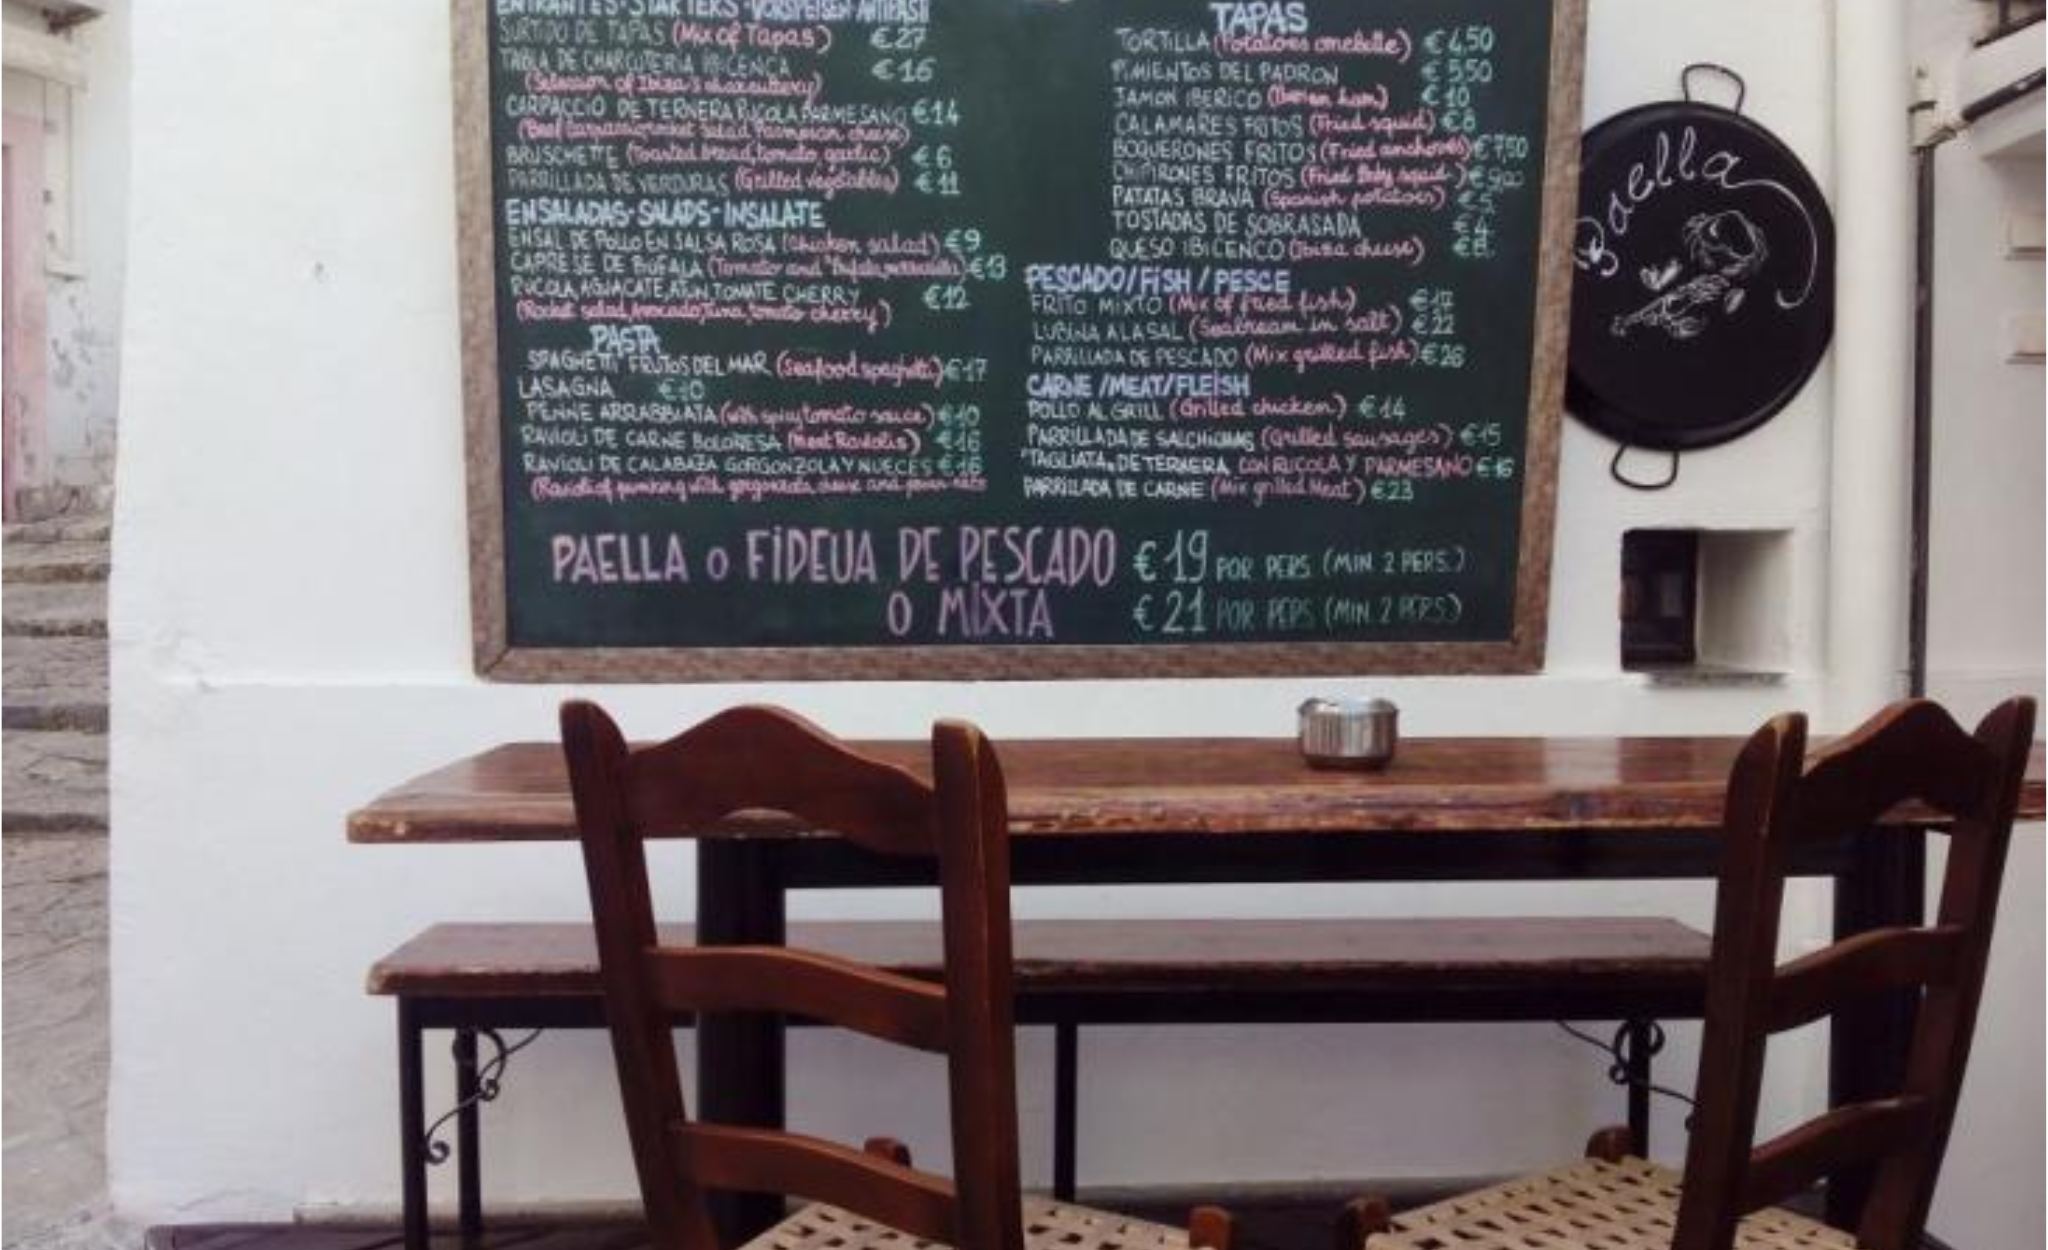 ENTRANTES·STARTERS·VORSPEISEN·ANTIPASTI
SURTIDO DE TAPAS (Mix of Tapas) €27
TABLA DE CHARCUTERIA IBICENCA €16
(Selection of Ibiza's charcuttery)
CARPACCIO DE TERNERA RUCOLA PARMESANO €14
(Beef carpaccio rocket salad Parmesan cheese)
BRUSCHETTE (Toasted bread, tomato, garlic) €6
PARRILLADA DE VERDURAS (Grilled vegetables) €11
ENSALADAS·SALADS·INSALATE
ENSAL DE POLLO EN SALSA ROSA (Chicken salad) €9
CAPRESE DE BUFALA (Tomato and "Bufala) €13
RUCOLA, AGUACATE, ATUN, TOMATE CHERRY €12
(Rocket salad, Avocado, Tuna, tomato cherry)
PASTA
SPAGHETTI FRUTOS DEL MAR (Seafood spaghetti) €17
LASAGNA €10
PENNE ARRABBIATA (with spicy tomato sauce) €10
RAVIOLI DE CARNE BOLOÑESA (Meat Raviolis) €16
RAVIOLI DE CALABAZA GORGONZOLA Y NUECES €16
(Ravioli of pumking with gorgonzola cheese and
TAPAS
TORTILLA (Potatoes omelette) €4,50
PIMIENTOS DEL PADRON €5,50
JAMON IBERICO (Iberian ham) €10
CALAMARES FRITOS (Fried squid) €8
BOQUERONES FRITOS (Fried anchovies) €7,50
CHIPIRONES FRITOS (Fried Baby squid) €9,00
PATATAS BRAVA (Spanish potatoes) €5
TOSTADAS DE SOBRASADA €4
QUESO IBICENCO (Ibiza cheese) €8
PESCADO/FISH/PESCE
FRITO MIXTO (Mix of fried fish)
LUBINA A LA SAL (Seabream in salt) €22
PARRILLADA DE PESCADO (Mix grilled fish) €26
CARNE/MEAT/FLEISH
POLLO AL GRILL (Grilled chicken) €14
PARRILLADA DE SALCHICHAS (Grilled sausages) €15
"TAGLIATA" DE TERNERA CON RUCOLA Y PARMESANO €16
PARRILLADA DE CARNE (Mix grilled Meat) €23
PAELLA o FIDEUA DE PESCADO €19 POR PERS (MIN. 2 PERS.)
O MIXTA €21 POR PERS (MIN. 2 PERS.)
Paella